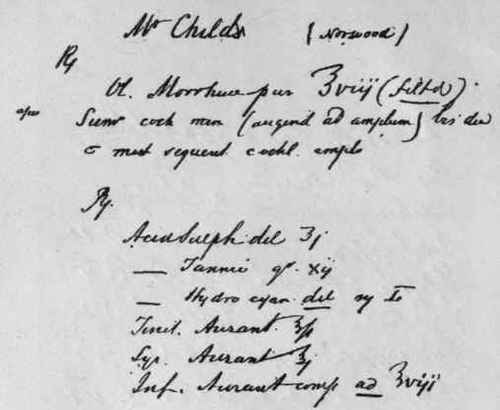 Mr Childs (Norwood)
℞
Ol. Morrhuae pur ℥viij (filtd)
Sum coch min (augend ad amplum) bis die
c mist sequent. cochl. amplo
℞.
Acid Sulph dil ʒj
— Tannic gr. xij
— Hydrocyan. dil
Tinct. Aurant. ℥ß
Syr. Aurant ℥j
Inf. Aurant comp ad ℥viij